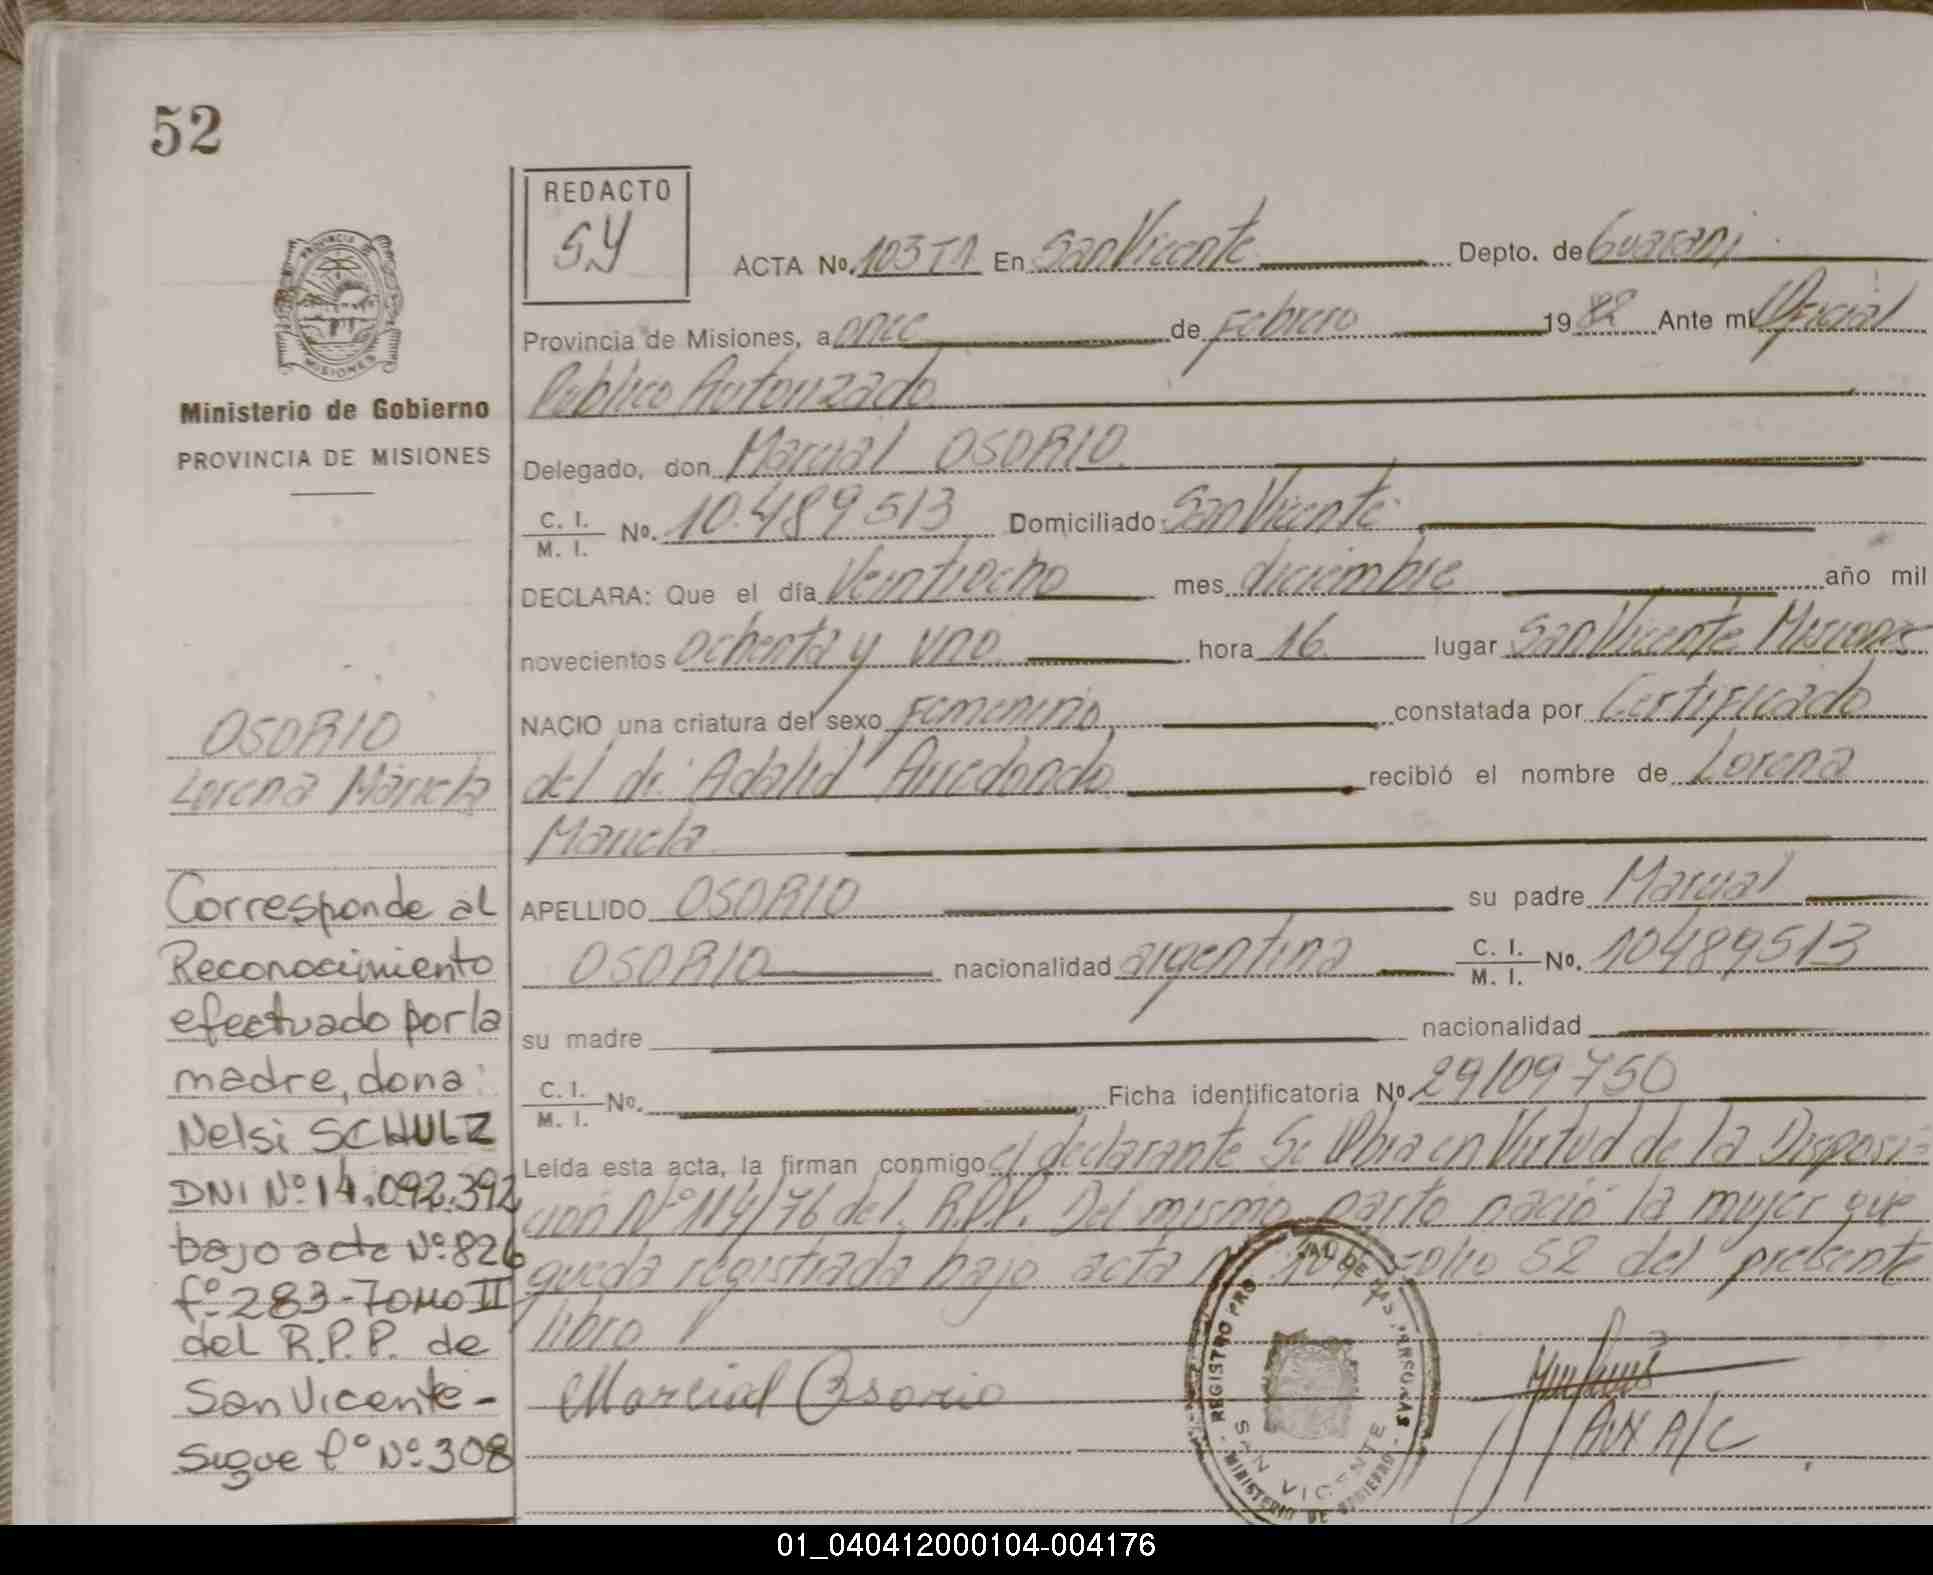 52
REDACTO
SY
ACTA No. 103 T1 En San Vicente Depto. de Guarani
Provincia de Misiones, a once de Febrero 1982 Ante mi Oficial
Publico Autorizado
Delegado, don Marcial OSORIO
C. I.
M. I. No. 10.489513 Domiciliado San Vicente
DECLARA: Que el día Veintiocho mes diciembre año mil
novecientos ochenta y uno hora 16 lugar San Vicente Misiones
NACIO una criatura del sexo Femenino constatada por Certificado
del dr. Adalid Arredondo recibió el nombre de Lorena
Mariela
APELLIDO OSORIO su padre Marcial
OSORIO nacionalidad argentina C. I.
M. I. No. 10489513
su madre nacionalidad
C. I.
M. I. No. Ficha identificatoria No. 29109750
Leída esta acta, la firman conmigo el declarante Se labra en Virtud de la Disposi-
ción N° 114/76 del R.P.P. Del mismo parto nació la mujer que
queda registrada bajo acta folio 52 del presente
libro
Marcial Osorio
AUX A/C
PROVINCIA DE
MISIONES
Ministerio de Gobierno
PROVINCIA DE MISIONES
OSORIO
Lorena Mariela
Corresponde al
Reconocimiento
efectuado por la
madre, dona:
Nelsi SCHULZ
DNI N° 14.092.392
bajo acta N° 826
f° 283-TOMO II
del R.P.P. de
San Vicente -
Sigue f° N° 308
REGISTRO PRO AL DE LAS PERSONAS
SAN VICENTE
- MINISTERIO DE GOBIERNO -
01_040412000104-004176